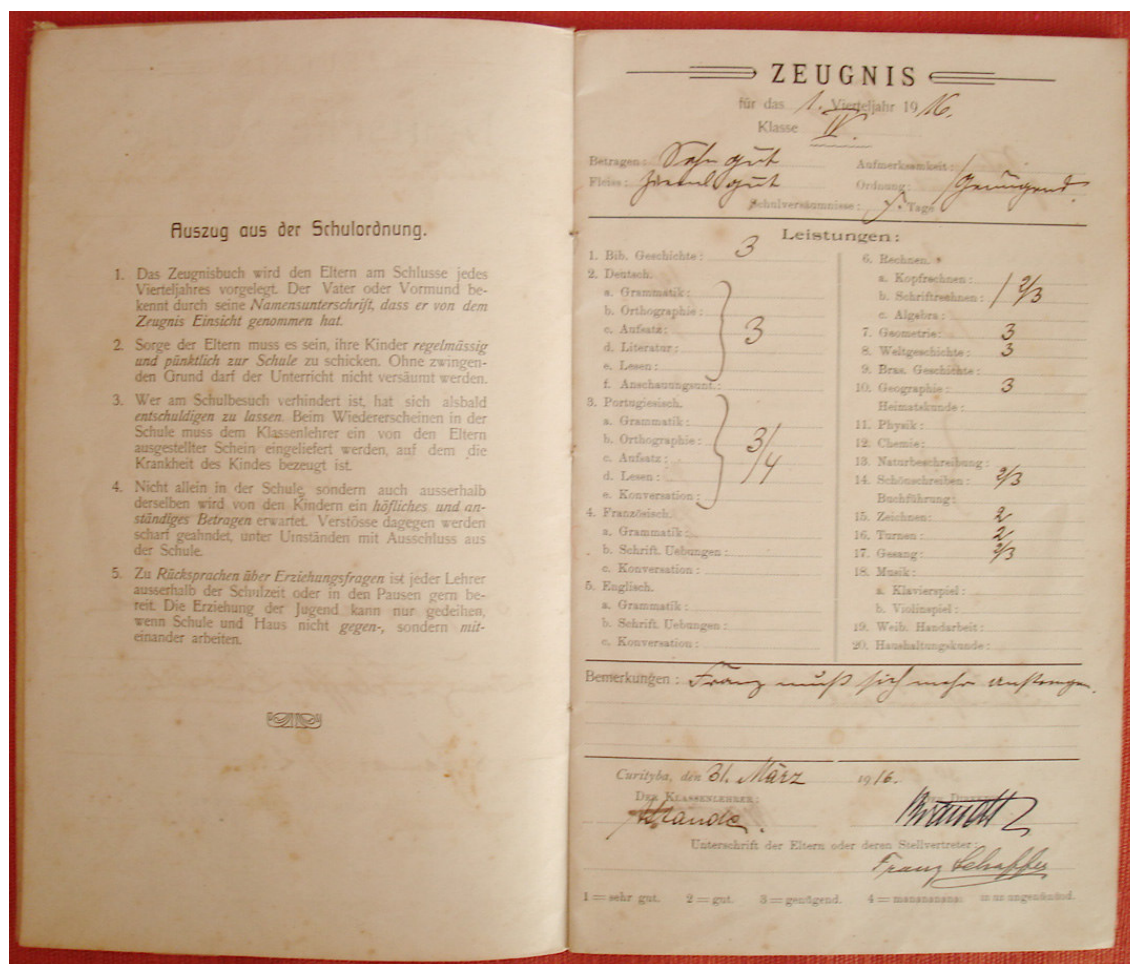 Auszug aus der Schulordnung.
1. Das Zeugnisbuch wird den Eltern am Schlusse jedes
Vierteljahres vorgelegt. Der Vater oder Vormund be-
kennt durch seine Namensunterschrift, dass er von dem
Zeugnis Einsicht genommen hat.
2. Sorge der Eltern muss es sein, ihre Kinder regelmässig
und pünktlich zur Schule zu schicken. Ohne zwingen-
den Grund darf der Unterricht nicht versäumt werden.
3. Wer am Schulbesuch verhindert ist, hat sich alsbald
entschuldigen zu lassen. Beim Wiedererscheinen in der
Schule muss dem Klassenlehrer ein von den Eltern
ausgestellter Schein eingeliefert werden, auf dem die
Krankheit des Kindes bezeugt ist.
4. Nicht allein in der Schule, sondern auch ausserhalb
derselben wird von den Kindern ein höfliches und an-
ständiges Betragen erwartet. Verstösse dagegen werden
scharf geahndet, unter Umständen mit Ausschluss aus
der Schule.
5. Zu Rücksprachen über Erziehungsfragen ist jeder Lehrer
ausserhalb der Schulzeit oder in den Pausen gern be-
reit. Die Erziehung der Jugend kann nur gedeihen,
wenn Schule und Haus nicht gegen-, sondern mit-
einander arbeiten.
ZEUGNIS
für das 1. Vierteljahr 1916.
Klasse IV.
Betragen: Sehr gut
Aufmerksamkeit:
Fleiss: Zieml. gut
Ordnung: Genügend.
Schulversäumnisse: Tage
Leistungen:
1. Bib. Geschichte: 3
2. Deutsch.
a. Grammatik:
b. Orthographie:
c. Aufsatz: 3
d. Literatur:
e. Lesen:
f. Anschauungsunt.:
3. Portugiesisch.
a. Grammatik:
b. Orthographie: 3/4
c. Aufsatz:
d. Lesen:
e. Konversation:
4. Französisch.
a. Grammatik:
b. Schrift. Uebungen:
c. Konversation:
5. Englisch.
a. Grammatik:
b. Schrift. Uebungen:
c. Konversation:
6. Rechnen.
a. Kopfrechnen:
b. Schriftrechnen: 2/3
c. Algebra:
7. Geometrie: 3
8. Weltgeschichte: 3
9. Bras. Geschichte:
10. Geographie: 3
Heimatskunde:
11. Physik:
12. Chemie:
13. Naturbeschreibung:
14. Schönschreiben: 2/3
Buchführung:
15. Zeichnen: 2
16. Turnen: 2
17. Gesang: 2/3
18. Musik:
a. Klavierspiel:
b. Violinspiel:
19. Weib. Handarbeit:
20. Haushaltungskunde:
Bemerkungen: Franz muß sich mehr anstrengen.
Curityba, den 31. März 1916.
DER KLASSENLEHRER:
Brandt
Unterschrift der Eltern oder deren Stellvertreter:
Franz Schaffer
1 = sehr gut. 2 = gut. 3 = genügend. 4 =